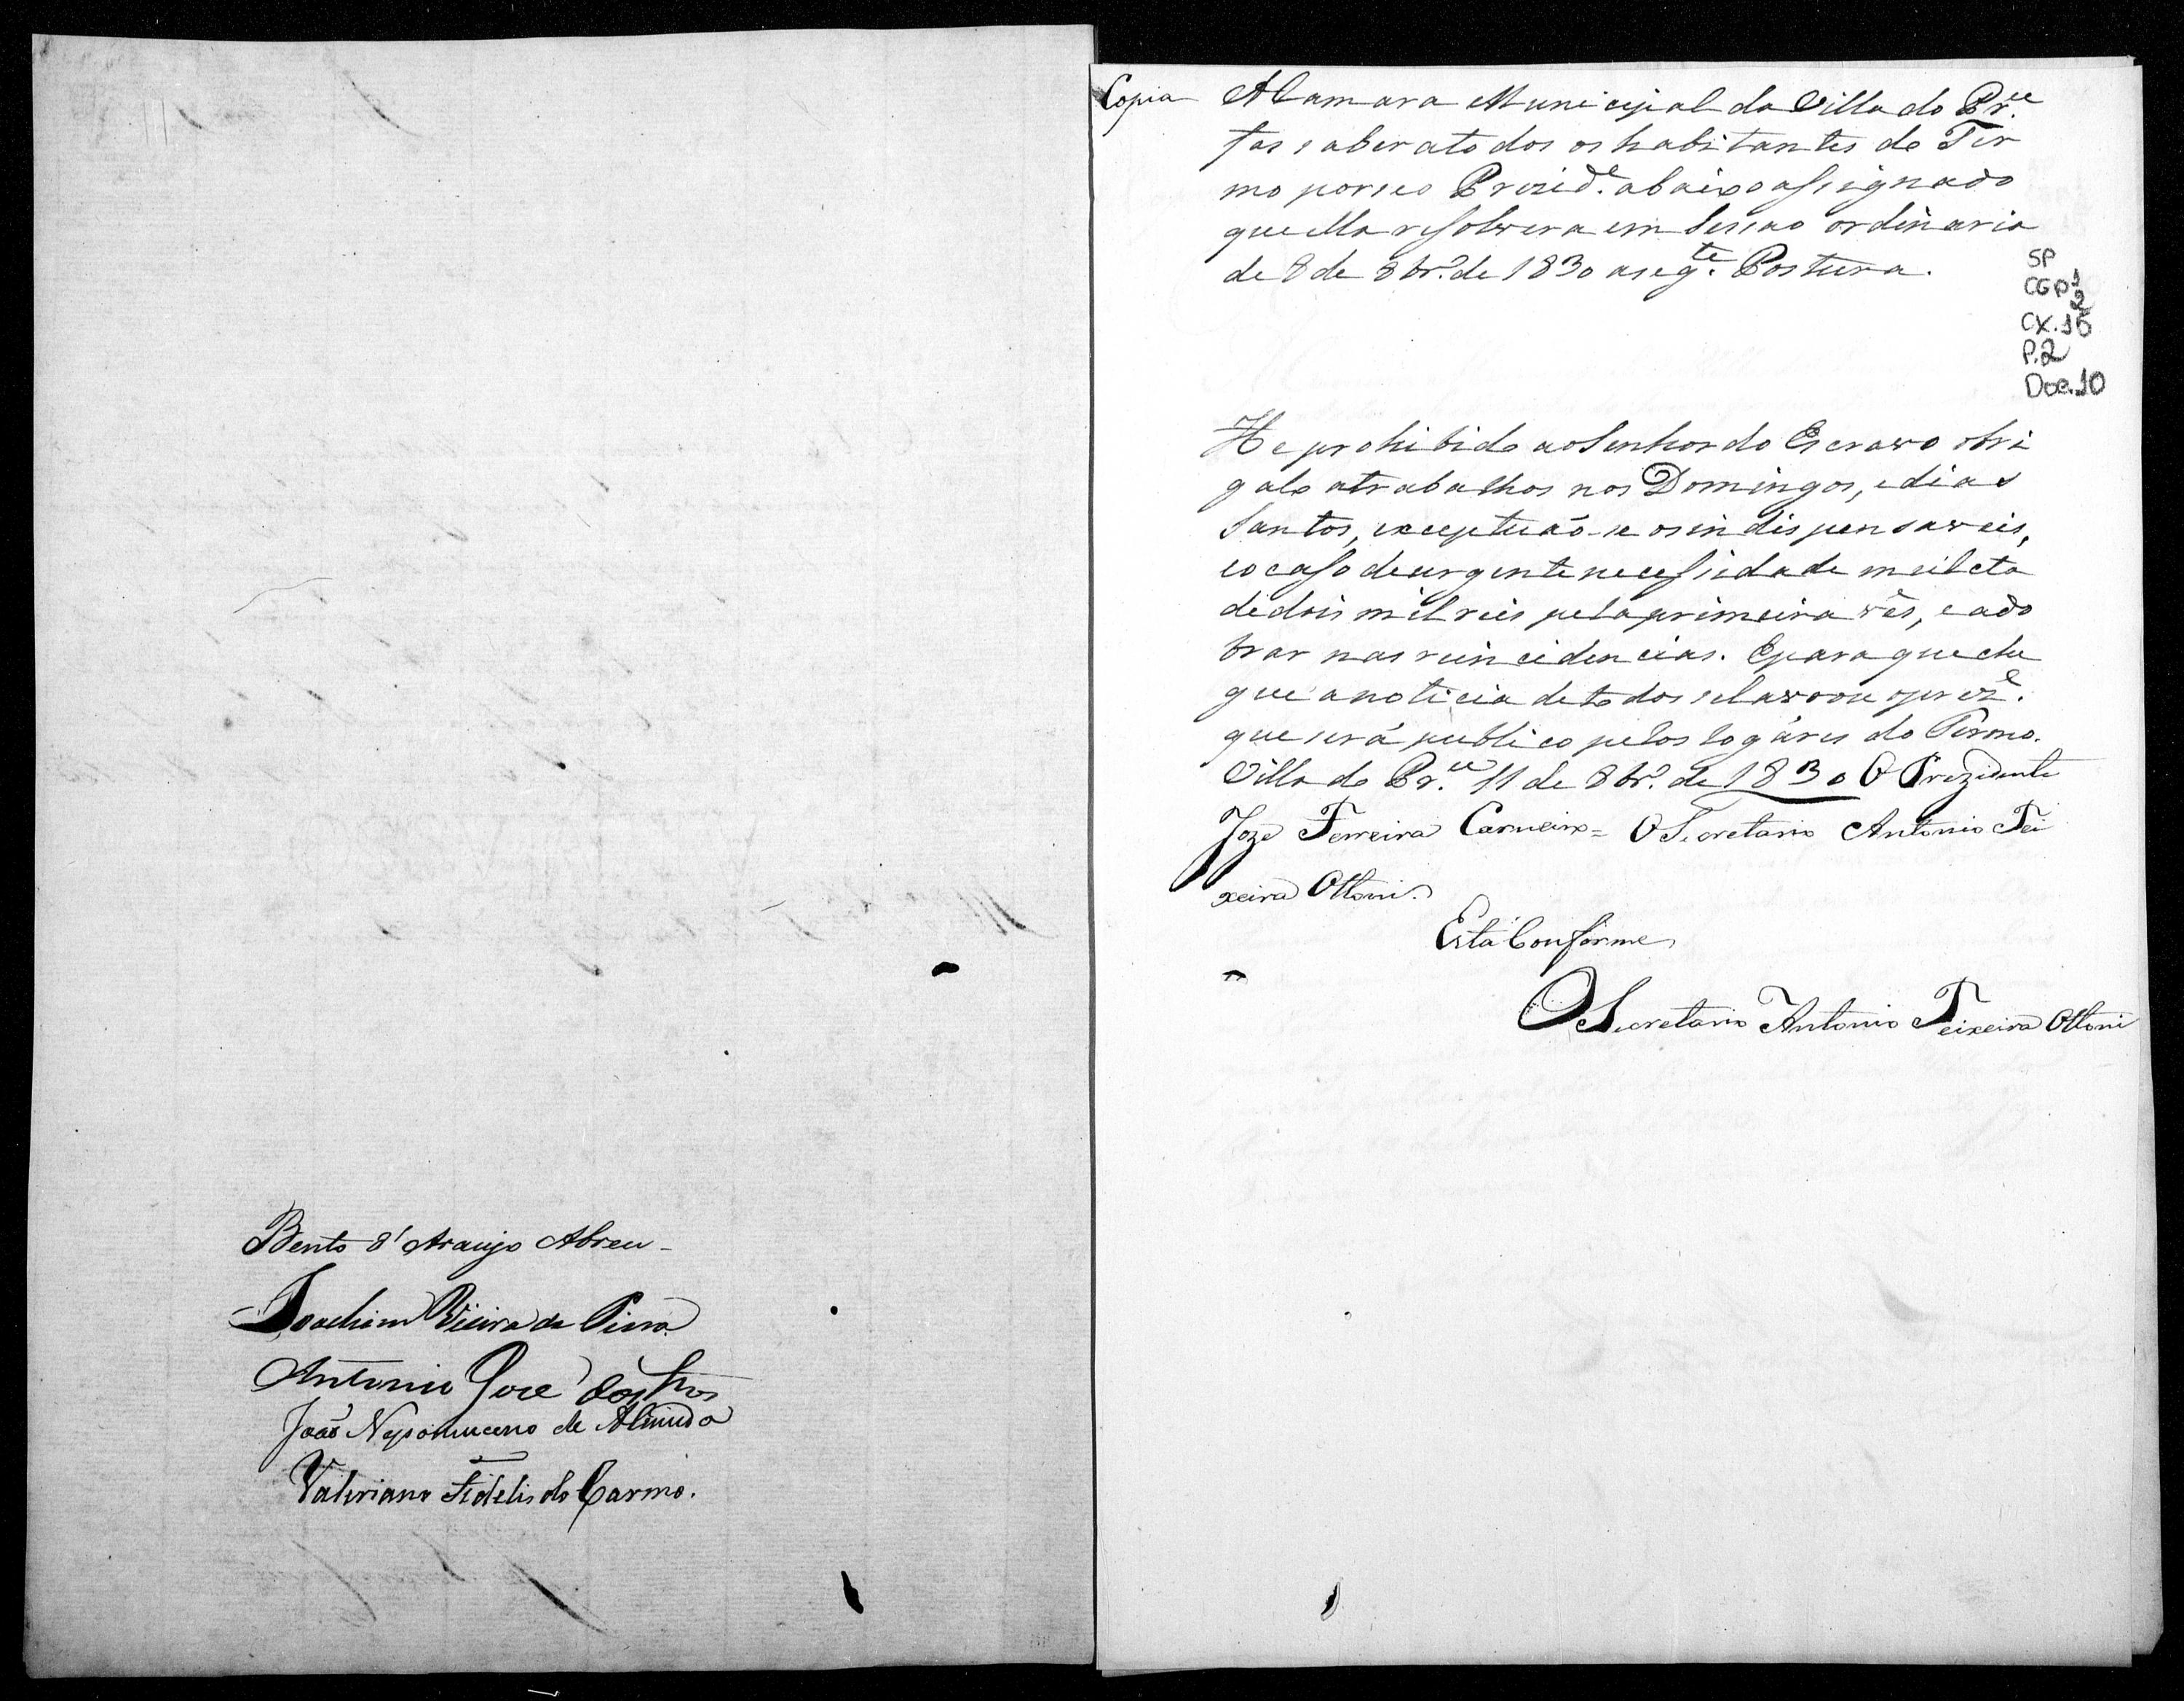 Bento d'Araujo Abreu -
Joachim Vieira da Piera
Antonio José dos Stos
João Nepomuceno de Almeida
Valeriano Fidelis do Carmo.
Copia
A Camara Municipal da Villa do Pr.e
fas saber a todos os habitantes do Ter
mo por seo Prezid.e abaixo assignado
que ella resolvera em Sessao ordinaria
de 8 de 8br.o de 1830 a seg.te Postura.
SP
CGP 1/2
CX. 15
P. 2
Doc. 10
He prohibido ao Senhor do Escravo obri
galo a trabalhos nos Domingos, e dias
Santos, exceptuão-se os indispensaveis,
e o caso de urgente necessidade mulcta
de dois mil reis pela primeira vês, e a do
brar nas reincidencias. E para que che
gue a noticia de todos se lavrou o prez.e
que será publico pelos logáres do Termo.
Villa do Pr.e 11 de 8br.o de 1830 O Prezidente
Joze Ferreira Carneiro = O Secretario Antonio Tei
xeira Ottoni.
Está Conforme
O Secretario Antonio Teixeira Ottoni